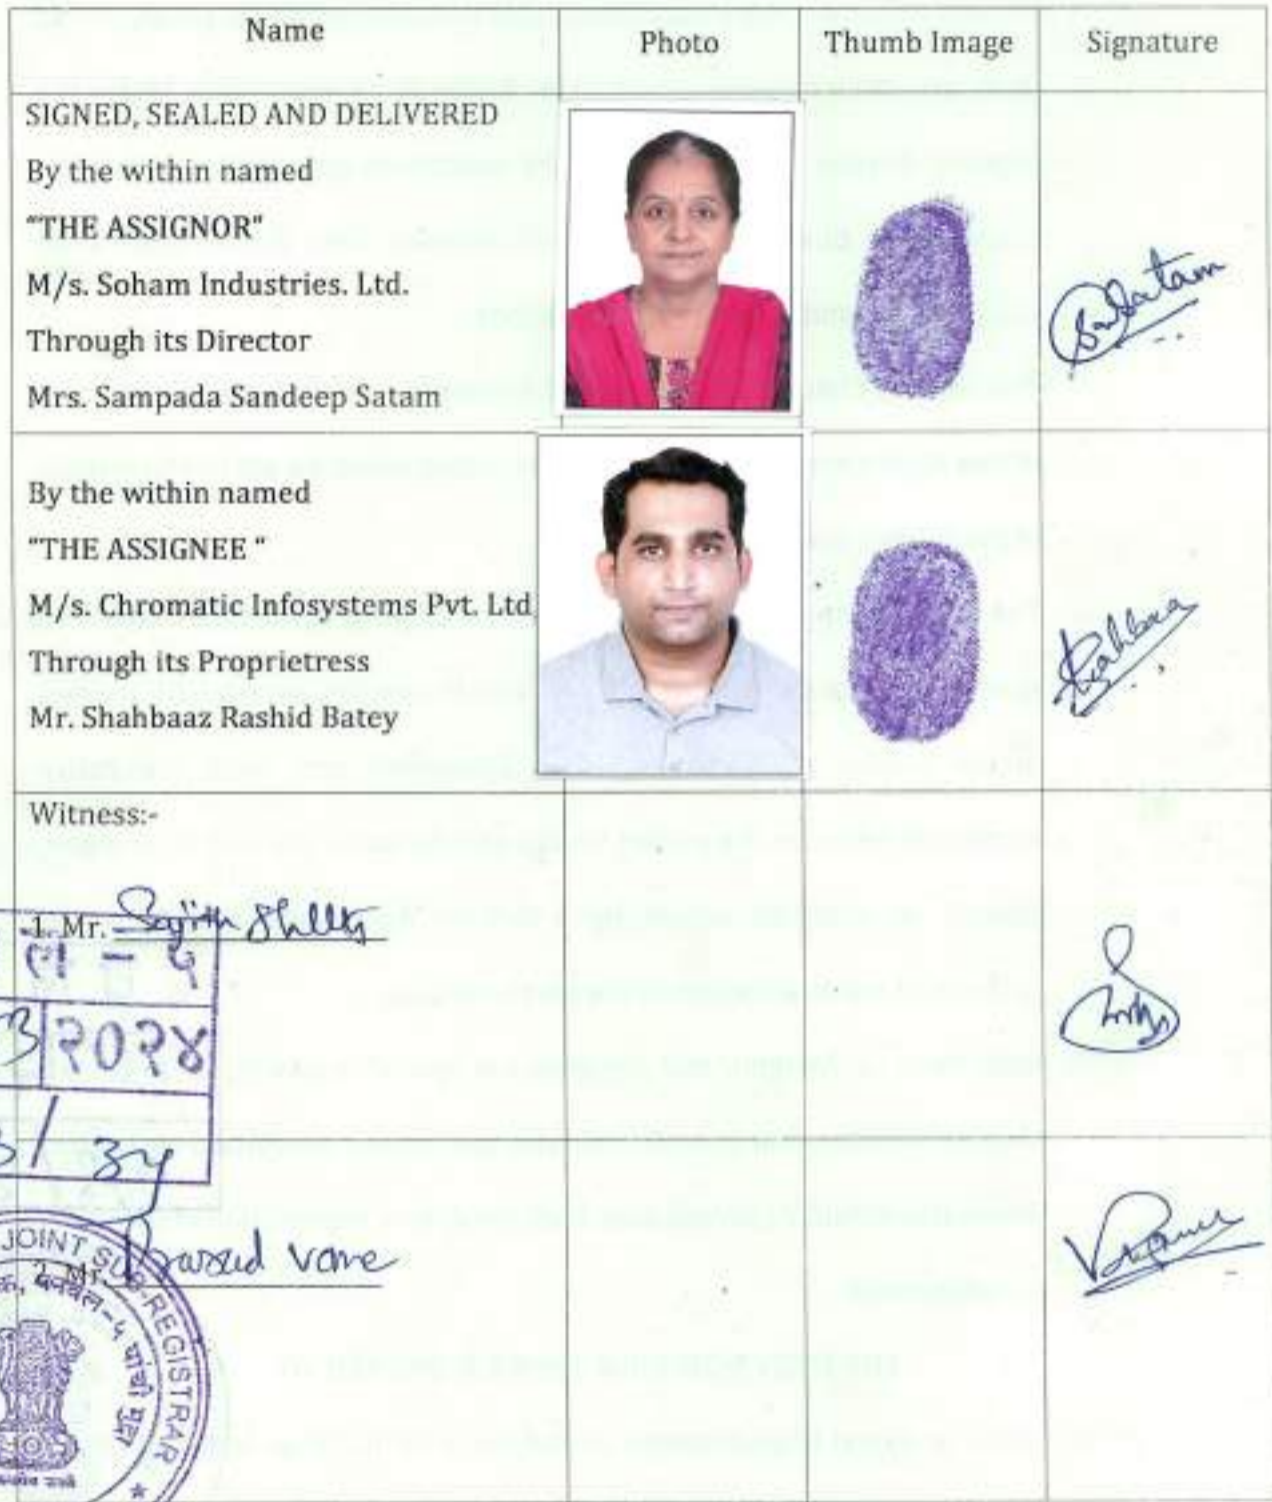 Name
Photo
Thumb Image
Signature
SIGNED, SEALED AND DELIVERED
By the within named
"THE ASSIGNOR"
M/s. Soham Industries. Ltd.
Through its Director
Mrs. Sampada Sandeep Satam
By the within named
"THE ASSIGNEE "
M/s. Chromatic Infosystems Pvt. Ltd
Through its Proprietress
Mr. Shahbaaz Rashid Batey
Witness:-
1. Mr.
ल - ५
२०२४
/ 34
2. Mr. Prasad Vane
JOINT SUB-REGISTRAR
पनवेल-५